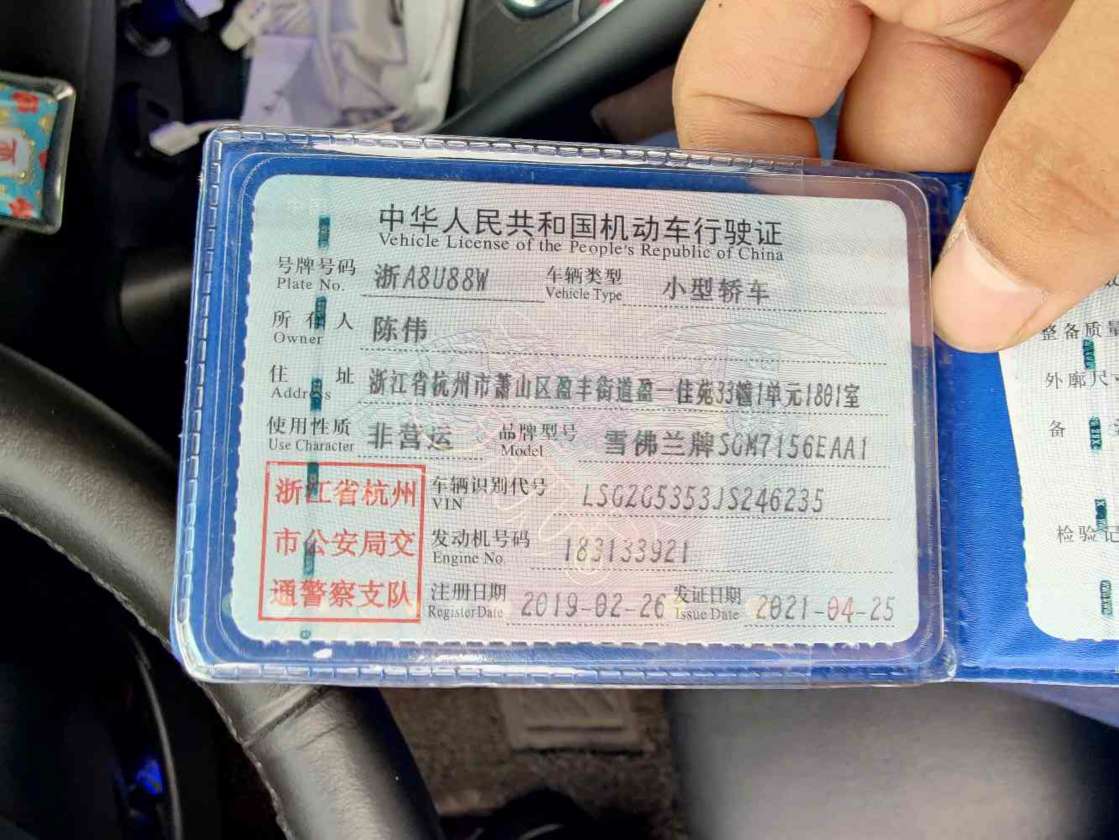 中华人民共和国机动车行驶证
Vehicle License of the People's Republic of China
号牌号码 浙A8U88W 车辆类型 小型轿车
Plate No. Vehicle Type
所有人 陈伟
Owner
住址 浙江省杭州市萧山区盈丰街道盈一佳苑33幢1单元1801室
Address
使用性质 非营运 品牌型号 雪佛兰牌SGM7156EAA1
Use Character Model
浙江省杭州
市公安局交
通警察支队
车辆识别代号 LSGZG5353JS246235
VIN
发动机号码 183133921
Engine No.
注册日期 2019-02-26 发证日期 2021-04-25
Register Date Issue Date
整备质量
外廓尺
备
检验记